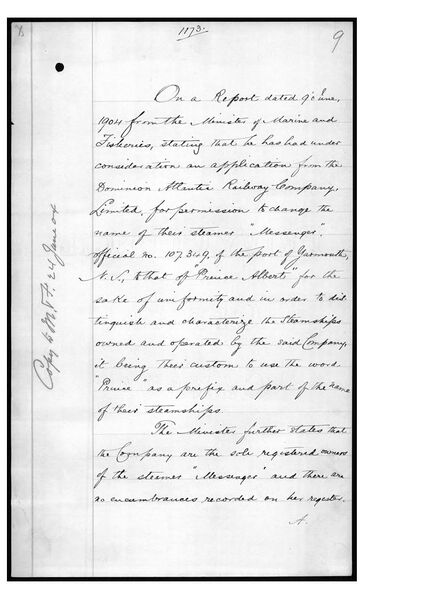 1173.
9
On a Report dated 9 June,
1904 from the Minister of Marine and
Fisheries, stating that he has had under
consideration an application from the
Dominion Atlantic Railway Company,
Limited, for permission to change the
name of their steamer "Messenger",
official no. 107,349, of the port of Yarmouth,
N.S., to that of "Prince Albert" for the
sake of uniformity and in order to dis-
tinguish and characterize the Steamships
owned and operated by the said Company,
it being their custom to use the word
"Prince" as a prefix and part of the name
of their steamships.
The Minister further states that
the Company are the sole registered owners
of the steamer "Messenger" and there are
no encumbrances recorded on her register.
Copy to M. & F. 24 June 04